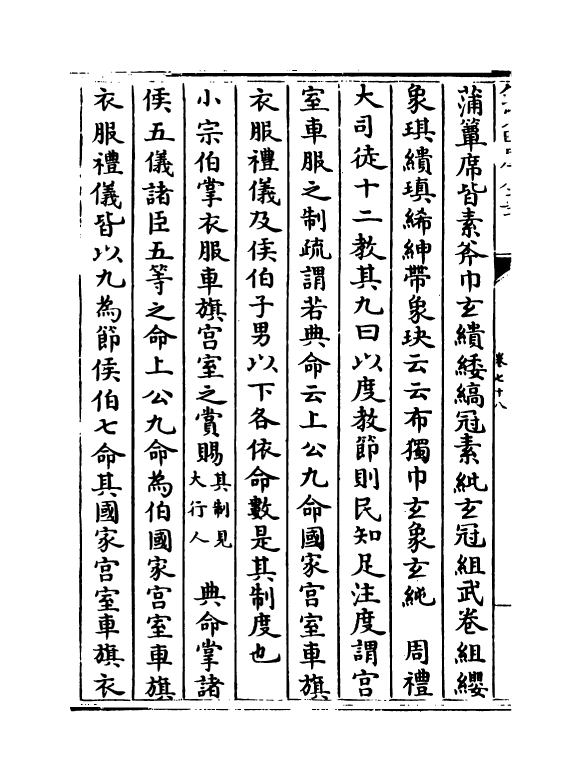 蒲簞席皆素斧巾玄繢緌縞冠素紕玄冠組武卷組纓
象琪繢瑱絺紳帶象玦云云布獨巾玄象玄純　周禮
大司徒十二教其九曰以度教節則民知足注度謂宫
室車服之制疏謂若典命云上公九命國家宫室車旗
衣服禮儀及侯伯子男以下各依命數是其制度也
小宗伯掌衣服車旗宫室之賞賜其制見大行人　典命掌諸
侯五儀諸臣五等之命上公九命為伯國家宫室車旗
衣服禮儀皆以九為節侯伯七命其國家宫室車旗衣
卷七十八